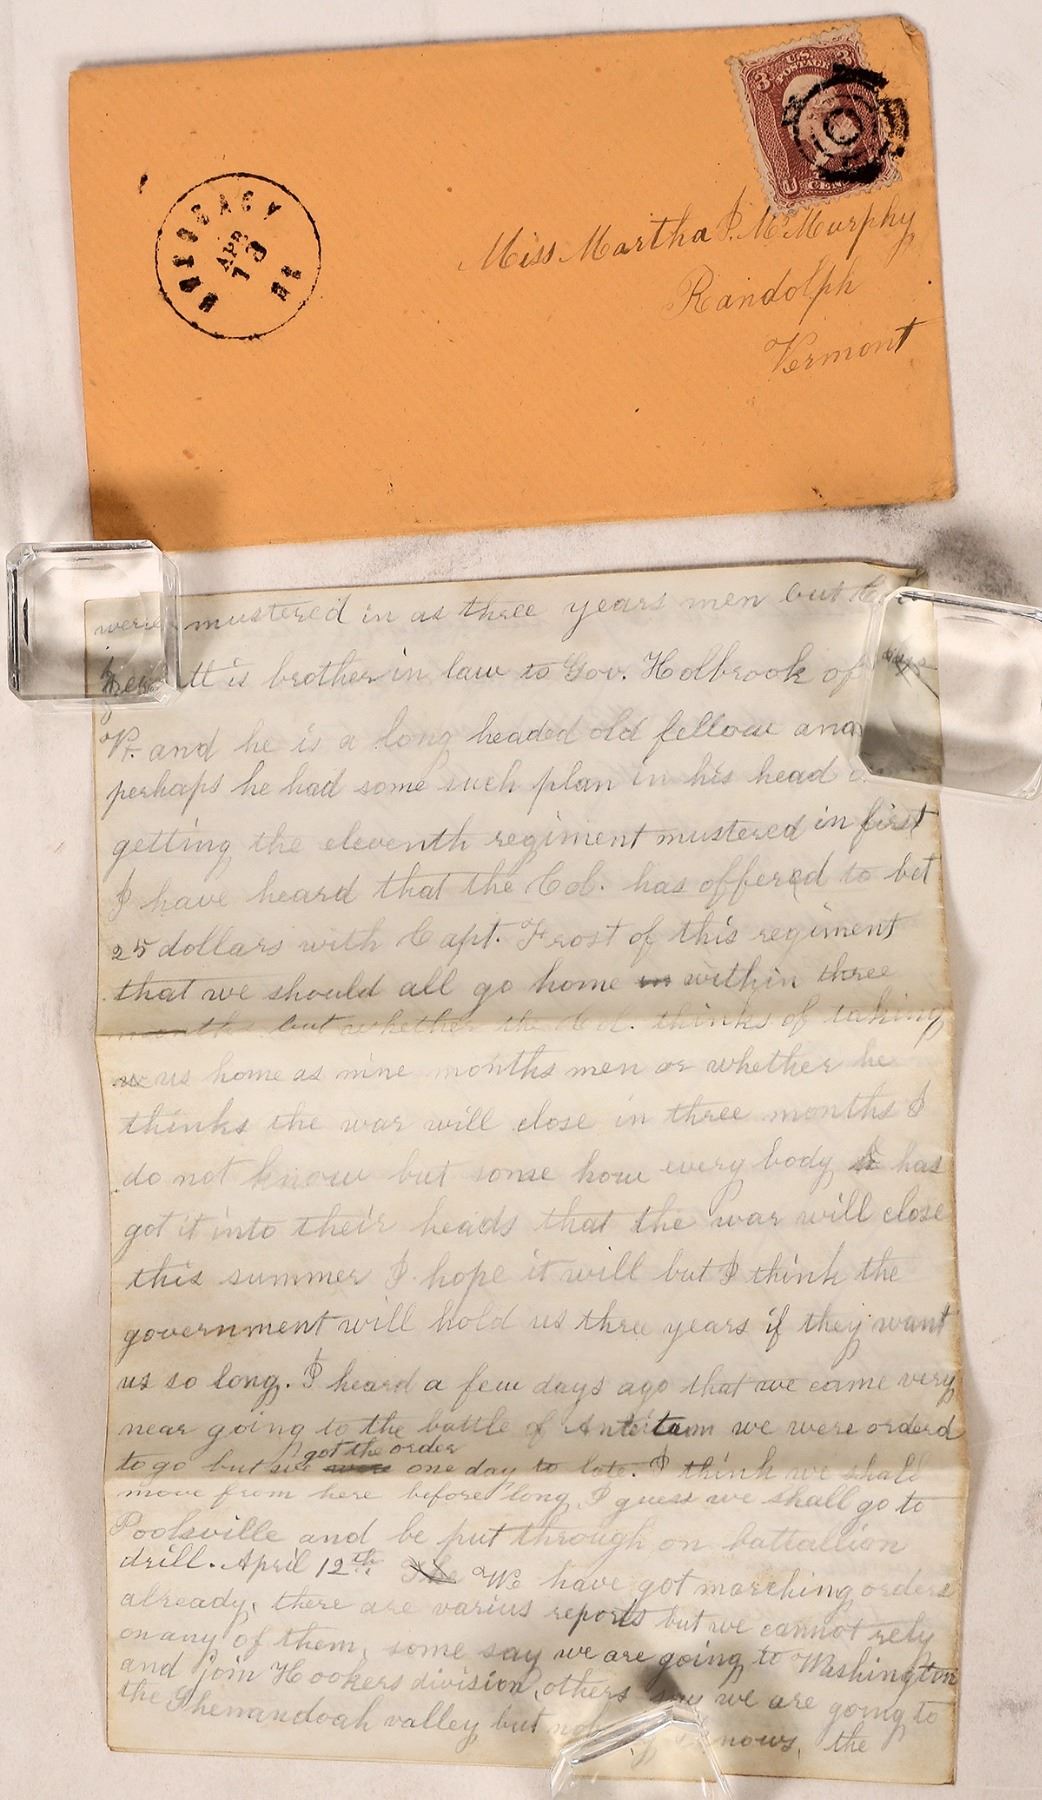 U.S.
POSTAGE
3
3
U
CEN
APR
13
MD
Miss Martha J. McMurphy
Randolph
Vermont
were mustered in as three years men but
it is brother in law to Gov. Holbrook of
Vt. and he is a long headed old fellow and
perhaps he had some such plan in his head
getting the eleventh regiment mustered in first
I have heard that the Col. has offered to bet
25 dollars with Capt. Frost of this regiment
that we should all go home in within three
months but whether the Col. thinks of taking
us home as nine months men or whether he
thinks the war will close in three months I
do not know but some how every body has
got it into their heads that the war will close
this summer I hope it will but I think the
government will hold us three years if they want
us so long. I heard a few days ago that we came very
near going to the battle of Antetam we were orderd
got the order
to go but we were one day to late. I think we shall
move from here before long I guess we shall go to
Poolsville and be put through on battallion
drill. April 12th. The We have got marching orders
already, there are varius reports but we cannot rely
on any of them, some say we are going to Washington
and join Hookers division, others say we are going to
the Shenandoah valley but knows, the